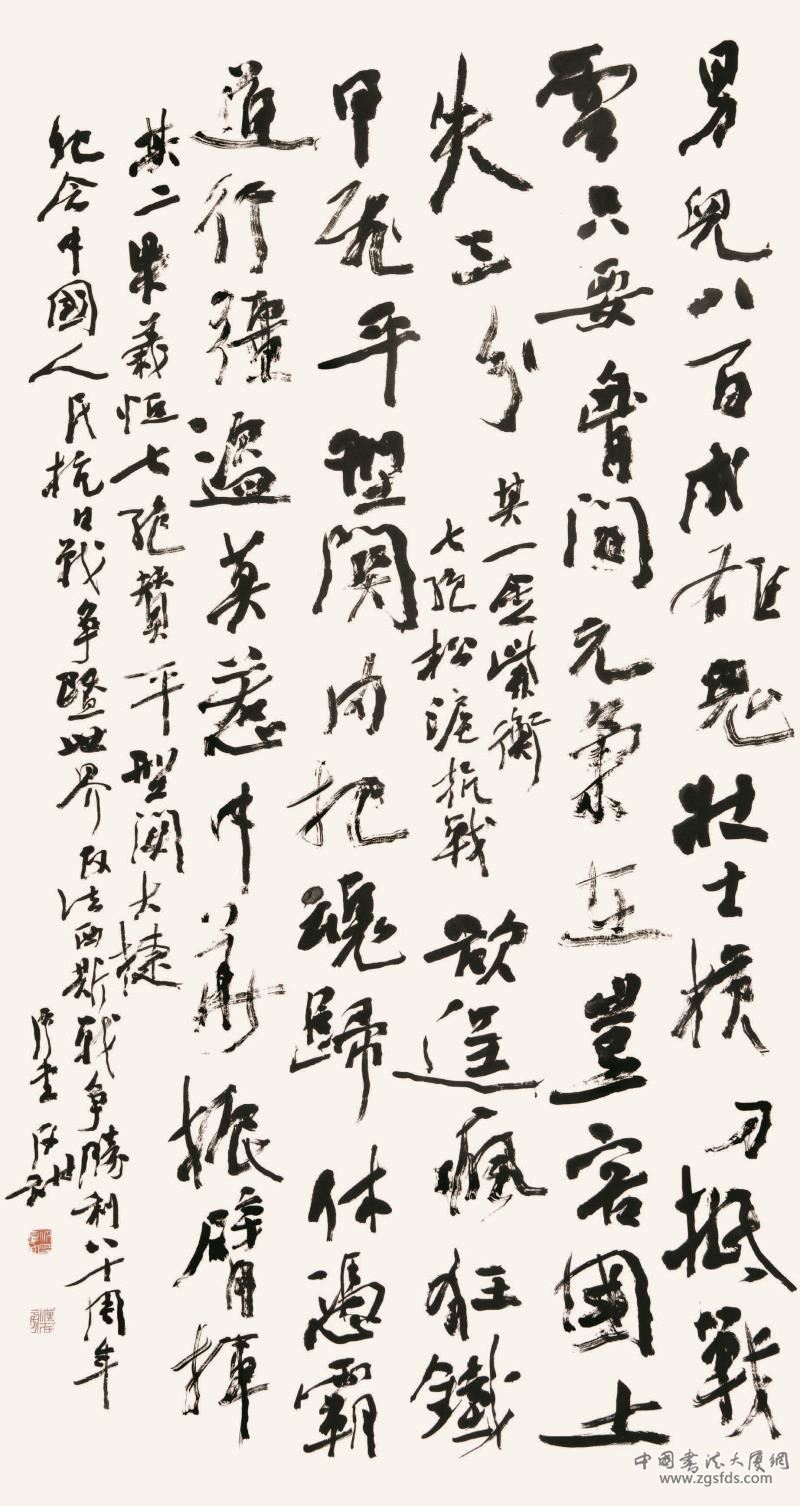 男兒八百成雄鬼壯士橫刀戰
雲只要胷間元氣在豈容國土
失三分
其一金紫衡
七絕松滬抗戰
欲逞瘋狂鐵
甲飛平型關內把魂歸休憑霸
道行彊盜莫惹中華振臂揮
其二朱義恒七絕贊平型關大捷
紀念中國人民抗日戰爭暨世界反法西斯戰爭勝利八十周年
中国書法大厦網
www.zgsfds.com